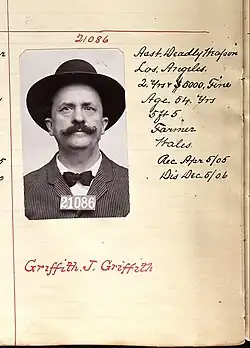 21086
Asst. Deadly Weapon
Los. Angeles.
2. Yrs & $5000, Fine
Age. 54. Yrs
5 ft 5.
Farmer
Wales.
Rec Apr 5/05
Dis Dec. 5/06
21086
Griffith. J. Griffith